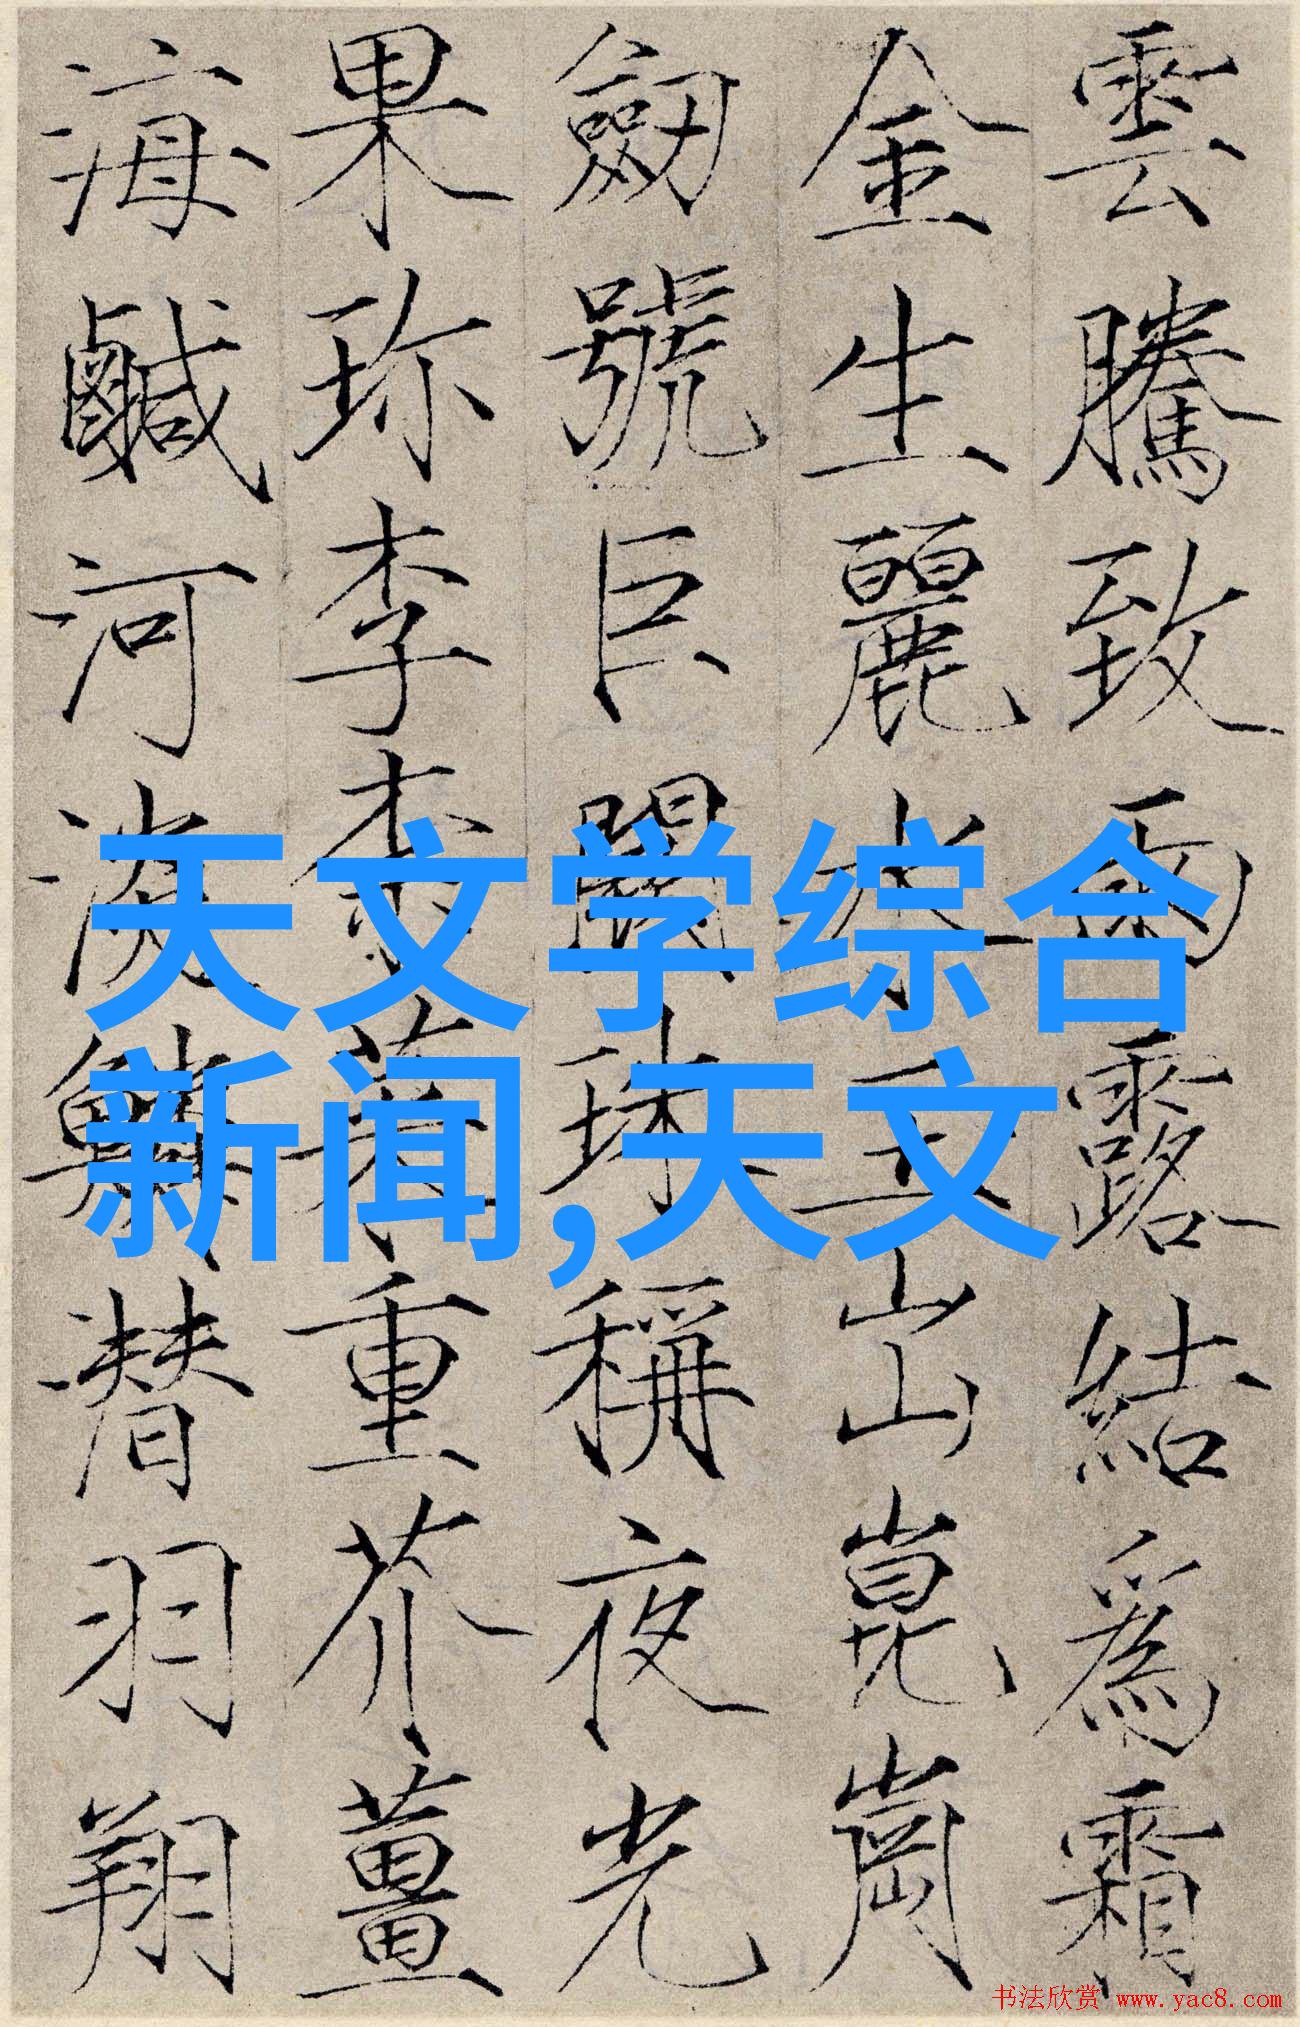 雲騰致雨露結為霜
金生麗水玉出崑崗
劒號巨闕珠稱夜光
果珎李柰菜重芥薑
海鹹河淡鱗潛羽翔
天文学综合
新闻,天文
书法欣赏 www.yac8.com